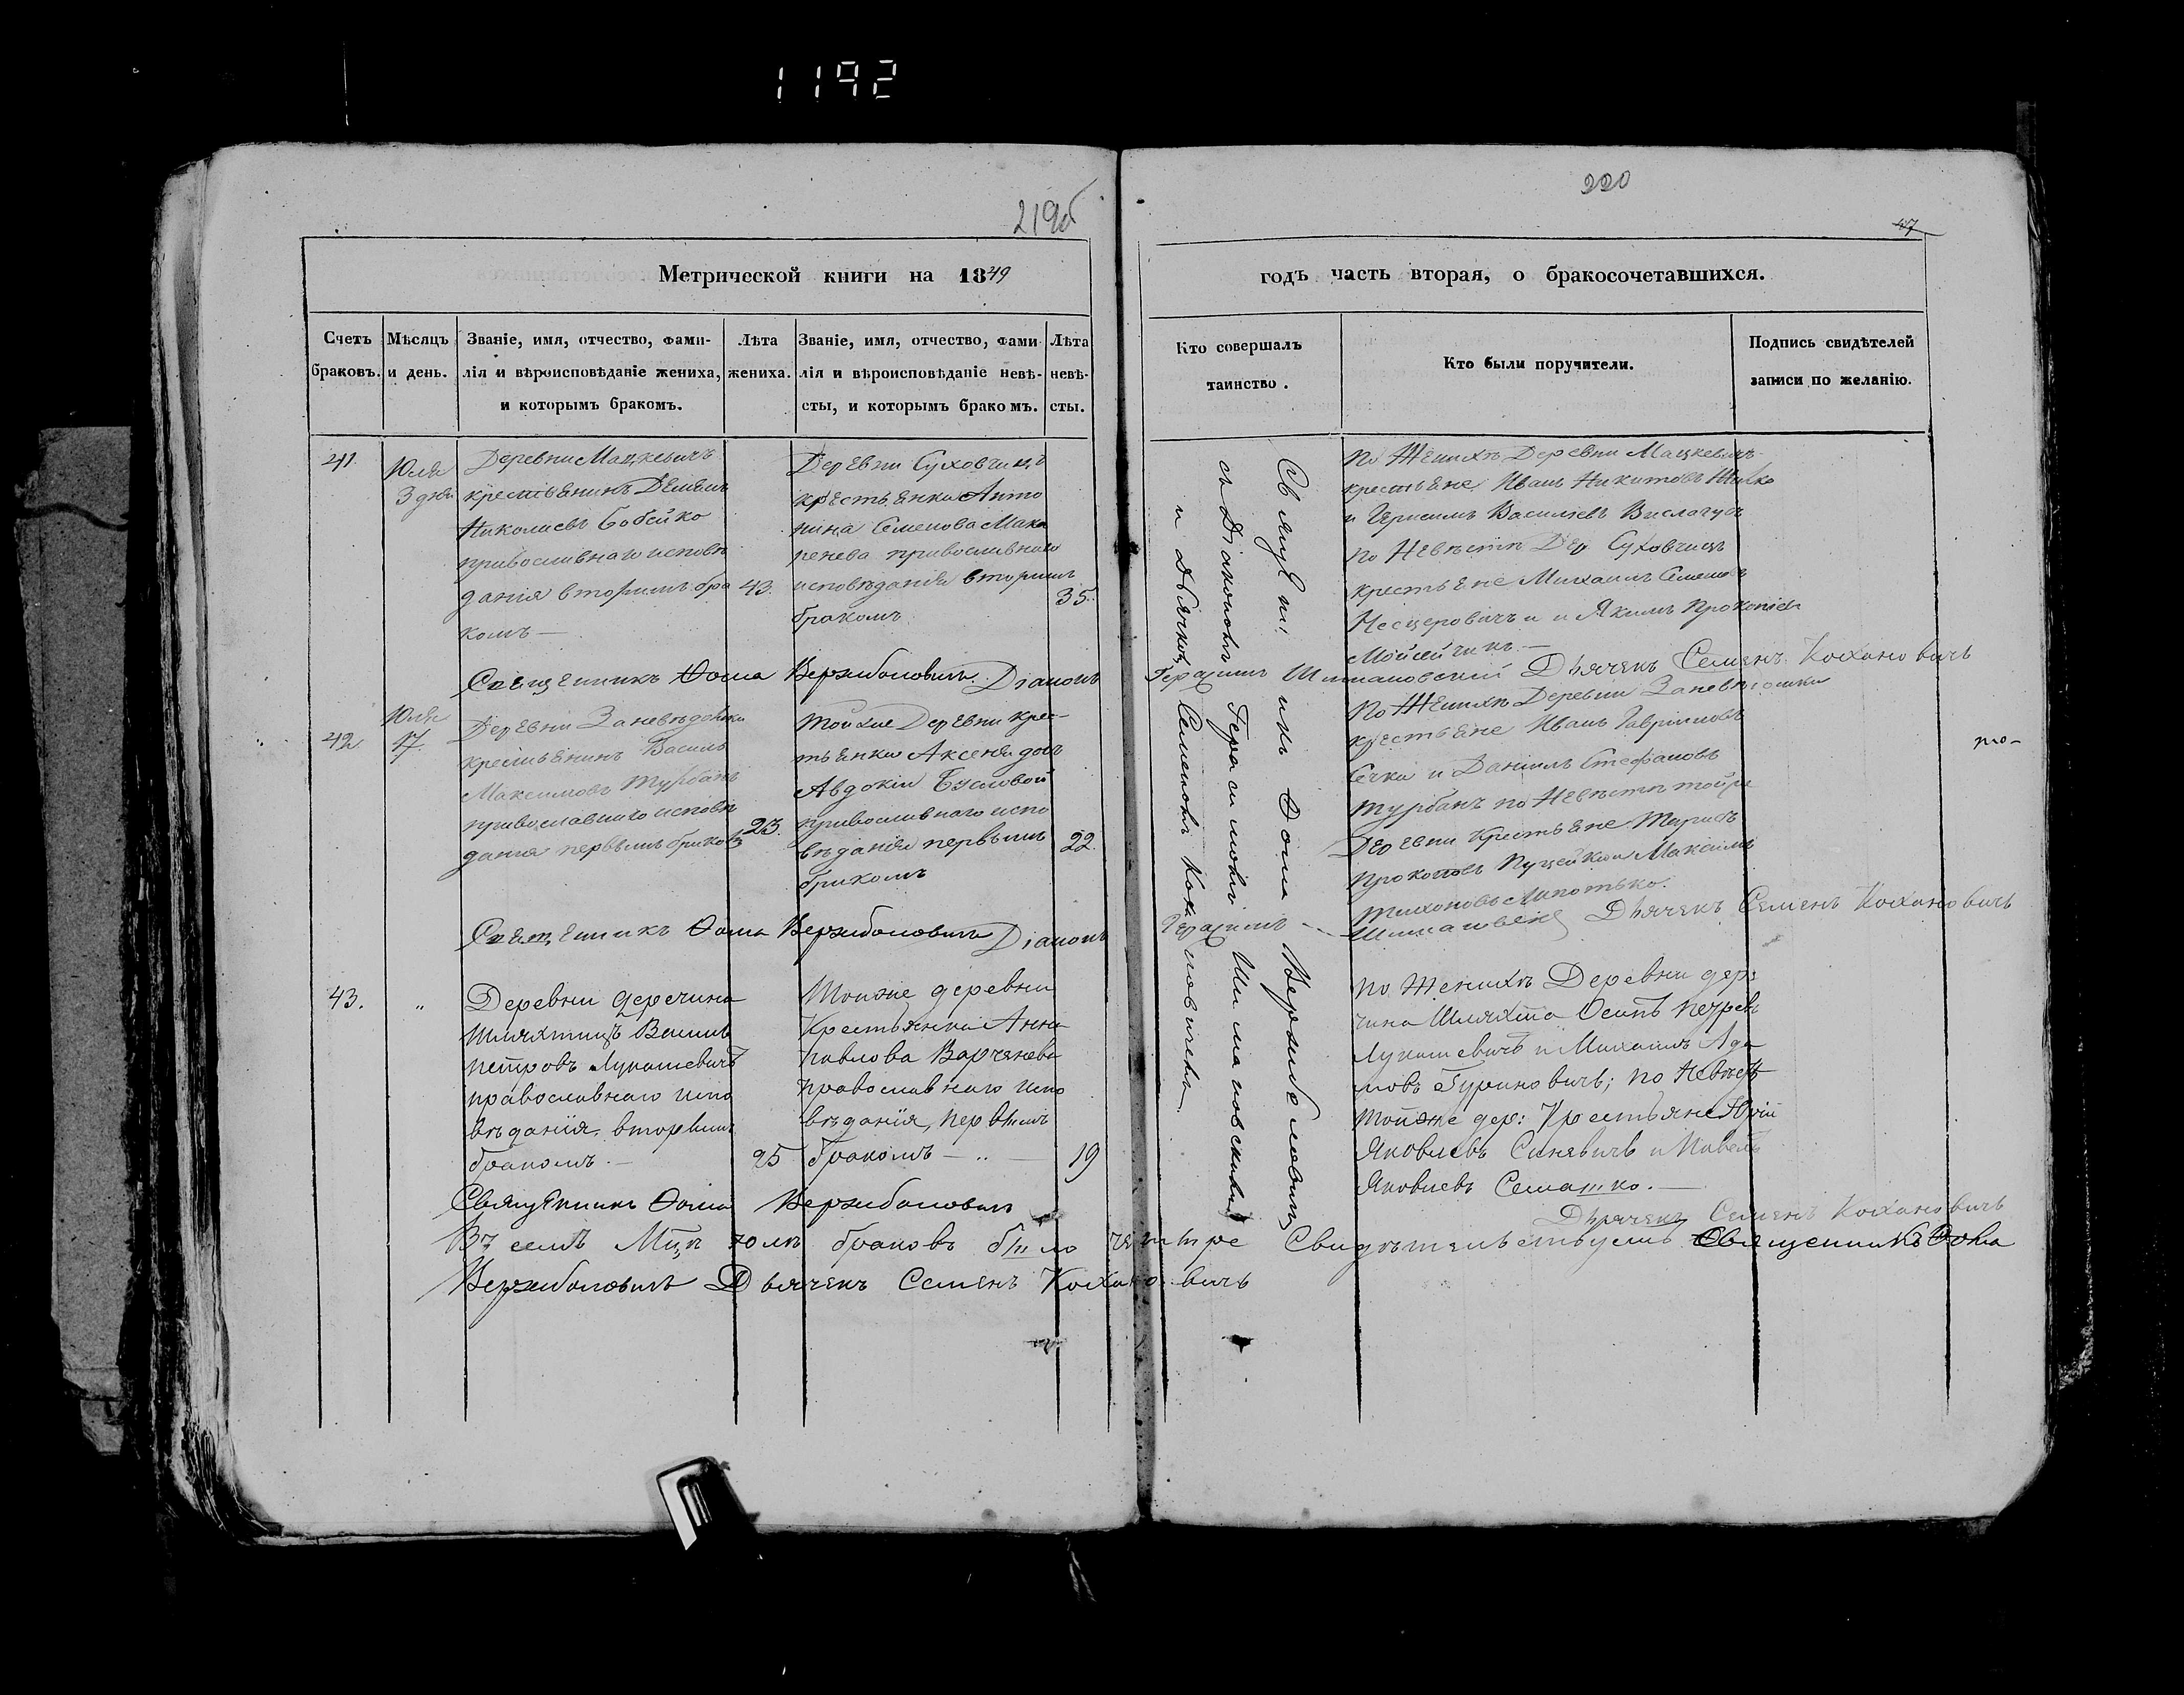 1192
219об
220
47
Метрической книги на 1849
годъ часть вторая, о бракосочетавшихся.
Счетъ браковъ.
Мѣсяцъ и день.
Званіе, имя, отчество, фами-
лія и вѣроисповѣданіе жениха,
и которымъ бракомъ.
Лѣта жениха.
Званіе, имя, отчество, фами
лія и вѣроисповѣданіе невѣ-
сты, и которымъ бракомъ.
Лѣта невѣ-
сты.
Кто совершалъ
таинство.
Кто были поручители.
Подпись свидѣтелей
записи по желанію.
41.
Юля
3 дня
Деревни Мацкевичъ
крестьянинъ
Николаевъ Бобейко
православнаго исповѣ
данія вторымъ бра
комъ —
43.
Деревни Суховчицъ
крестьянка Анто
нина Семенова Мака
ренева православнаго
исповѣданія вторымъ
бракомъ
35.
По Женихѣ Деревни Мацкевичъ
крестьяне Иванъ Никитовъ
и Герасимъ Васильевъ Вислогузъ
по Невѣстѣ Дер. Суховчицъ
крестьяне Михаилъ Семеновъ
Несцеровичъ и Якимъ Прокопіевъ
Мойсейчикъ. —
Священникъ Ѳома Вержболовичъ. Діаконъ Герасимъ Шимановскій Дьячекъ Семенъ Кохановичъ
42.
Юля
17.
Деревни
крестьянинъ Василь
Максимовъ Турбанъ
православнаго исповѣ
данія первымъ бракомъ
23.
тойже Деревни крес-
тьянка Аксенія дочь
Авдокіи Бусловой
православнаго испо
вѣданія первымъ
бракомъ
22.
По Женихѣ Деревни
крестьяне Иванъ Гавриловъ
Сечка и Даніилъ Стефановъ
Турбанъ по Невѣстѣ тойже
Деревни Крестьяне
Прокоповъ и Максимъ
Тихоновъ Лапотько.
Священникъ Ѳома Вержболовичъ Діаконъ Герасимъ Дьячекъ Семенъ Кохановичъ
43.
„
Деревни Деречина
шляхтицъ Василь
Петровъ Лукашевичъ
православнаго испо
вѣданія, вторымъ
бракомъ. —
25
Тойже деревни
Крестьянка Анна
Павлова Варченева
православнаго испо
вѣданія, первымъ
бракомъ — „ —
19
по женихѣ Деревни Дере
чина Шляхта Осипъ Петровъ
Лукашевичъ и Михаилъ Ада
мовъ Гуриновичъ; по Невѣстѣ
тойже дер: Крестьяне Юрій
Яковлевъ Синявичъ и Павелъ
Яковлевъ Семашко. —
Священникъ Ѳома Вержболовичъ
Дьячекъ Семенъ Кохановичъ
Священникъ Ѳома Вержболовичъ
съ Діакономъ Герасимомъ Шимановскимъ
и Дьячкомъ Семеномъ Кохановичемъ
Въ семъ Мцѣ юлѣ браковъ было четыре Свидѣтельствуемъ Священникъ Ѳома
Вержболовичъ Дьячекъ Семенъ Кохановичъ